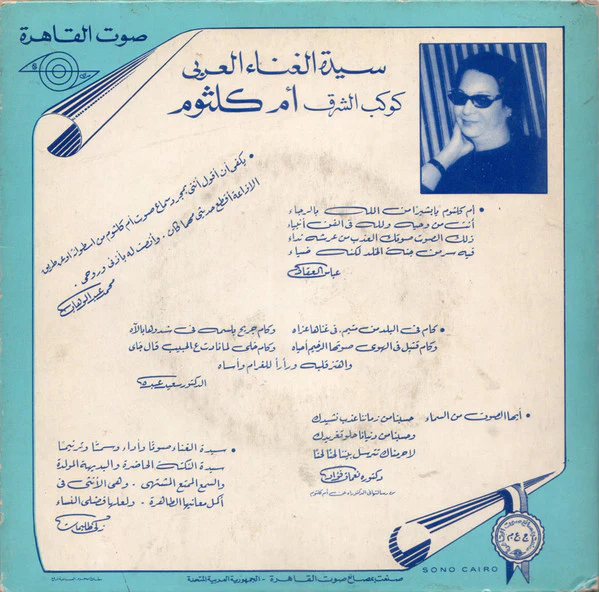 صوت القاهرة
سيدة الغناء العربى
كوكب الشرق أم كلثوم
• يكفى أن أقول أننى بمجرد سماع صوت أم كلثوم من اسطوانة أو عن طريق
الإذاعة أقطع حديثى مهما كان . وأنصت له بأذنى وروحى .
محمد عبد الوهاب
• أم كلثوم يا بشيرا من الله بالرجاء
أنت من وحيه ولله فى الفن أنبياء
ذلك الصوت صوتك العذب من عرشه نداء
فيه سر من جنة الخلد لكنه ضياء
عباس العقاد
• كام فى البلد من شيم . فى غناها عزاه وكام جريح بلسمه فى شدوها بالآه
وكام قتيل فى الهوى صوتها الرخيم أحياه وكام خلى لما نادت ع الحبيب قال جاى
والهتز قلبه ورأرأ للغرام وأساه
الدكتور سعيد عبده
• أيها الصوت من السماء حسبنا من زماننا عذب نشيدك
وحسبنا من دنيانا حلو تغريدك
لاحرمناك تترسل بيننا لحنا لحنا
دكتوره نعمات فؤاد
• سيدة الغناء صوتا وأداء وسمتا وترنيما
سيدة النكتة الحاضرة والبديهة المولدة
والسمع الممتع المشتهى . وهى الأنثى فى
أكمل معانيها الطاهرة . ولعلها قضاى النساء
زكى طليمات
SONO CAIRO
صنعت بمصانع صوت القاهرة - الجمهورية العربية المتحدة